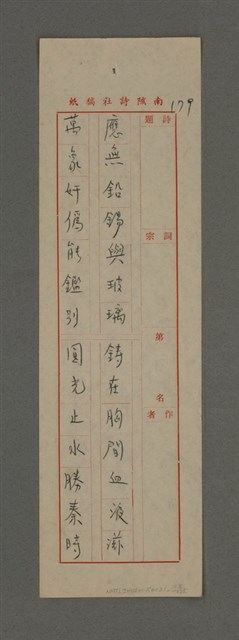 南陔詩社稿紙
179
詩題
詞宗
第 名
作者
應無鉛錫與玻璃鑄在胸間血液滋
萬象奸僞能鑑別圓光止水勝秦時